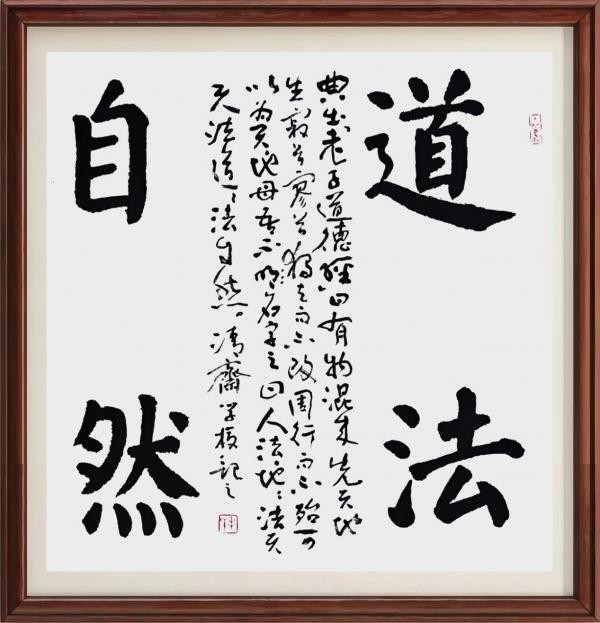 道法
典出老子道德經曰有物混成先天地
生寂兮寥兮独立而不改周行而不殆可
以为天地母吾不明名字之曰人法地〻法天
天法道〻法自然。齋学記之
自然